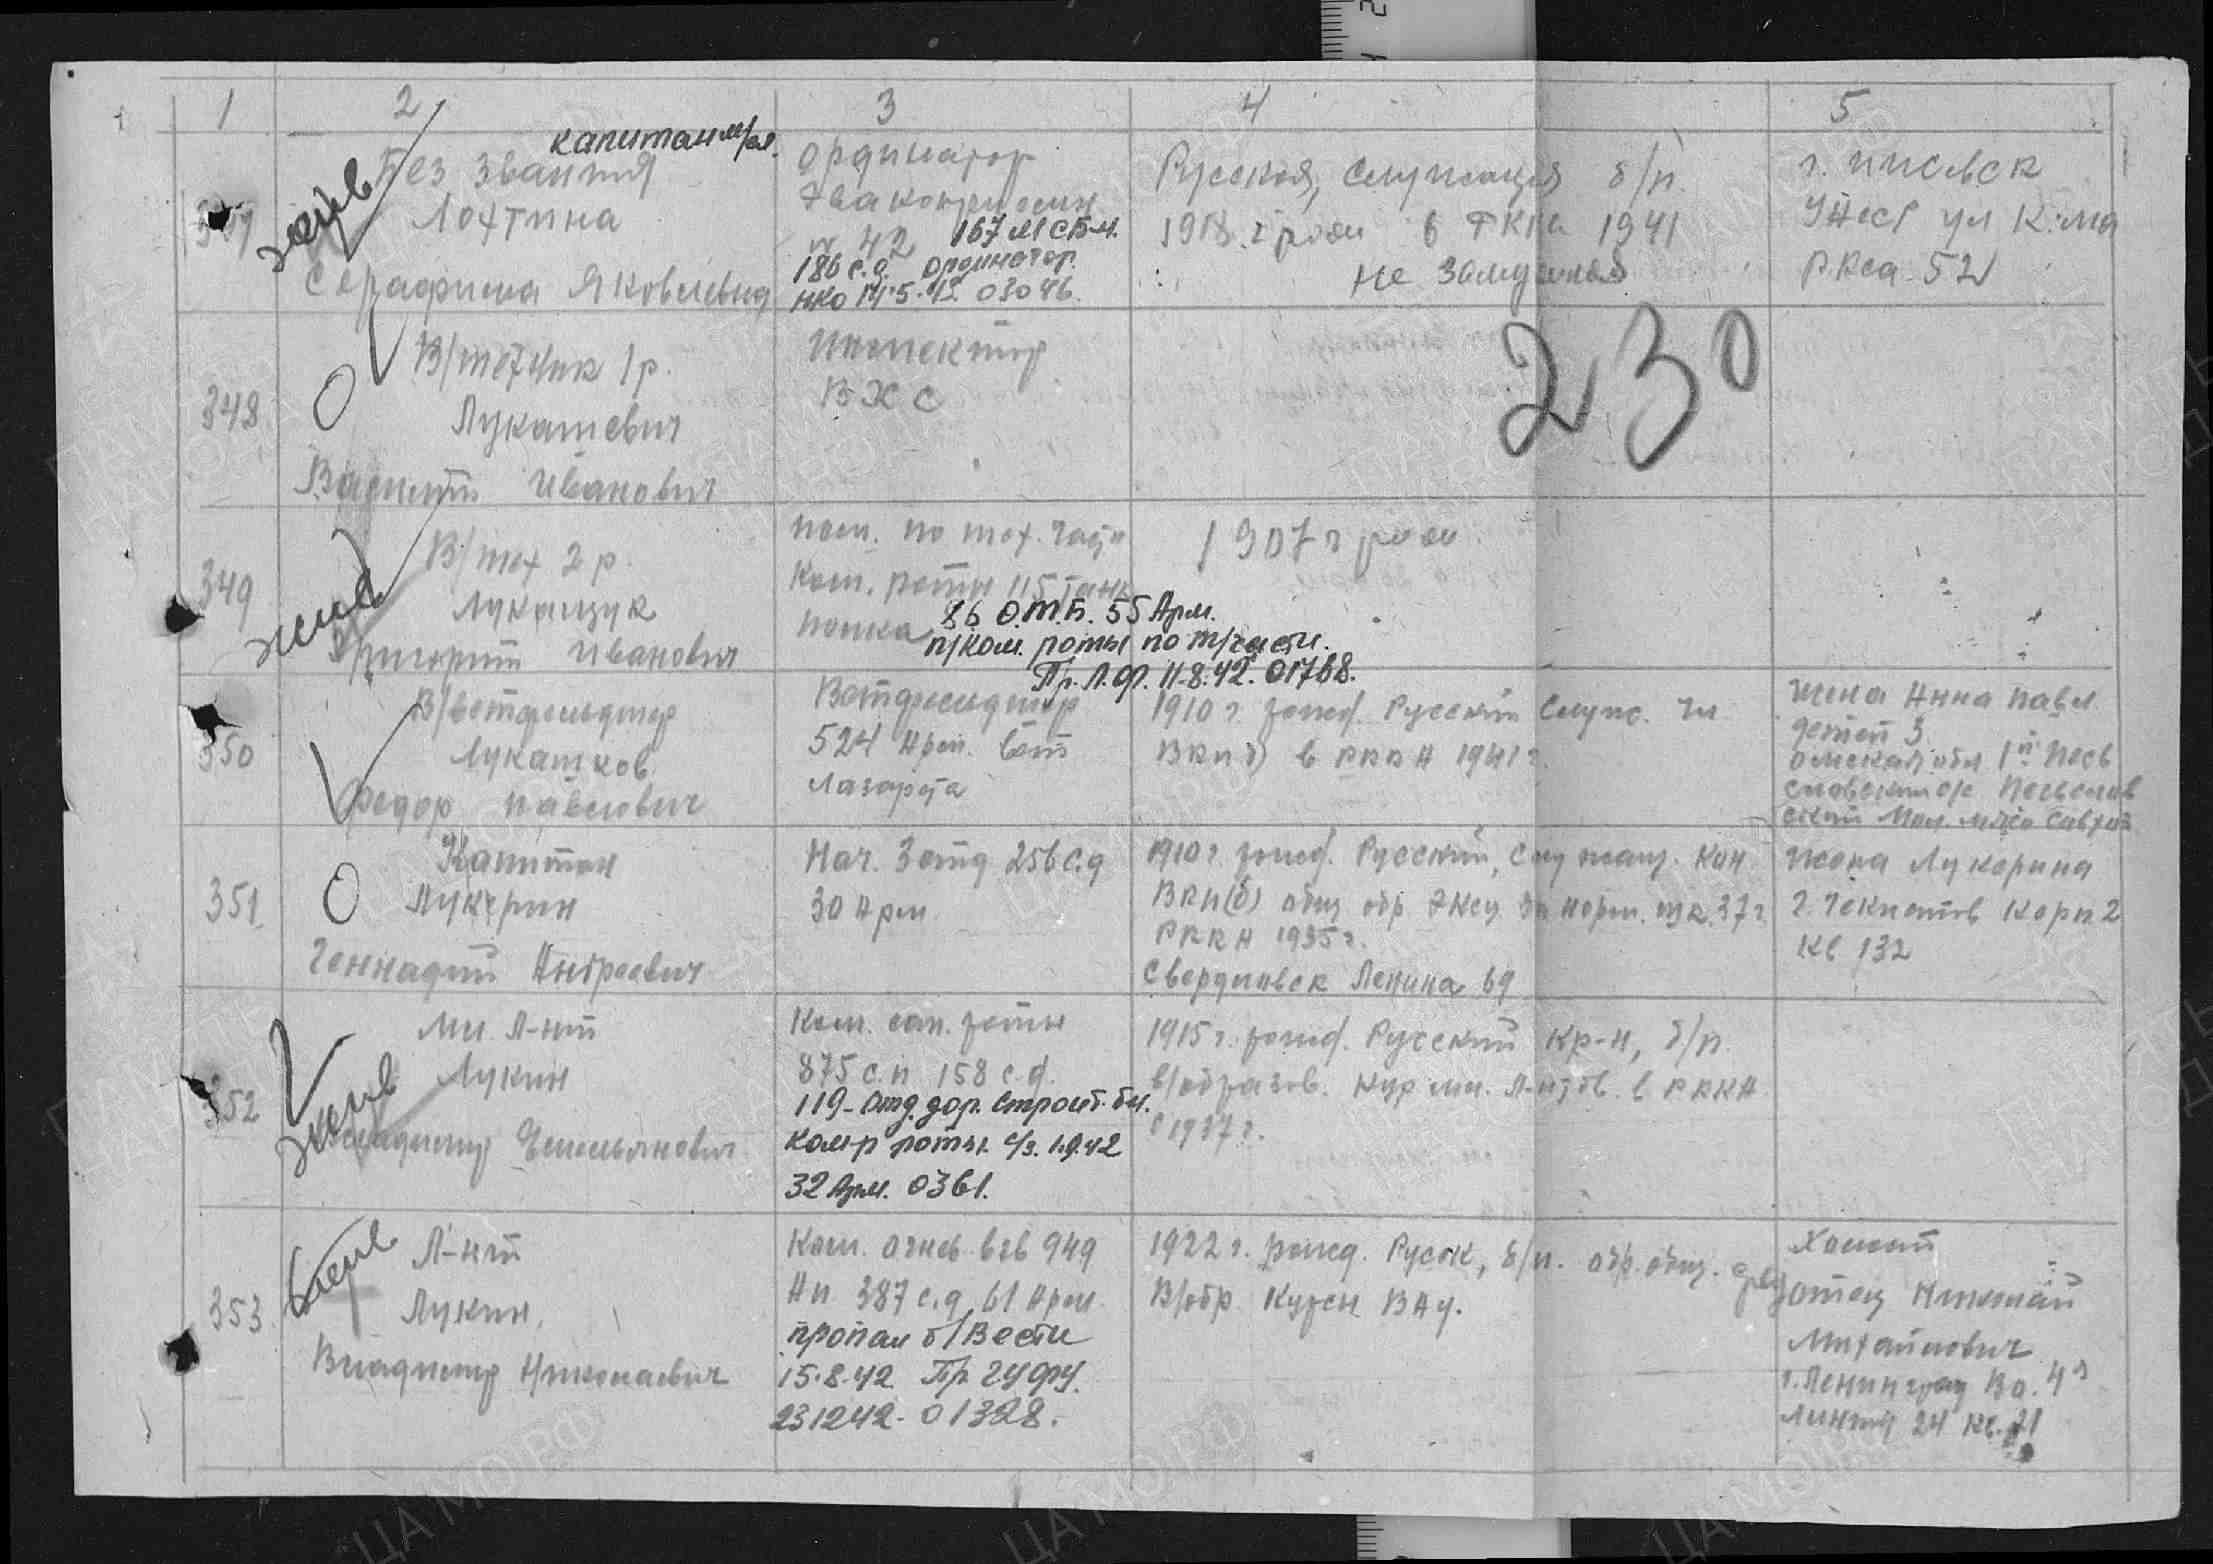 1 2 3 4 5
капитан м/сл.
Без звания
Лохтина
Серафима Яковлевна
жив
ординатор
эвакогоспит.
№ 42 167 МСБ-н.
186 с.д. ординатор.
НКО 14.5.42 03046.
Русская, служащая б/п.
1918 г рожд в РККА 1941
Не замужняя
г. Ижевск
УАССР ул К.Ма
ркса 52
230
348
В/техник 1 р.
Лукашевич
Василий Иванович
Инспектор
ВХС
349
жив
В/тех 2 р.
Лукащук
Григорий Иванович
пом. по тех. части
ком. роты 115 танк
полка 86 О.Т.Б. 55 Арм.
п/ком. роты по т/части.
Пр. Л.Ф. 11-8.42. 01768.
1907 г рожд
350
В/ветфельдшер
Лукашков
Федор Павлович
Ветфельдшер
524 Арм. вет
лазарета
1910 г рожд. Русский служ. чл.
ВКП(б) в РККА 1941 г.
жена Анна Павл.
детей 3
Омская обл
351
Капитан
Лукерин
Геннадий Андреевич
Нач. 3 отд 256 с.д
30 Арм.
1910 г. рожд. Русский, служащ. Кан.
ВКП(б) общ обр 7 кл
РККА 1935 г.
Свердловск Ленина 69
жена Лукерина
г.
корп 2
кв 132
352
жив
Мл. Л-нт
Лукин
Владимир Емельянович
Ком. сап. роты
875 с.п 158 с.д.
119-отд. дор. строит. бн.
ком-р роты. с/з. 1.9.42
32 Арм. 0361.
1915 г. рожд. Русский кр-н, б/п.
в/образов. кур мл. л-нтов. в РККА
с 1937 г.
353
Л-нт
Лукин,
Владимир Николаевич
Ком. огнев. взв 949
Ап 387 с.д. 61 Арм.
пропал б/вести
15.8.42. Пр. ГУФУ.
231242-01328.
1922 г. рожд. Русск, б/п. обр. общ. сред
В/обр. курсы ВАУ.
Холост
отец Николай
Михайлович
г. Ленинград В.О. 4я
линия 24 кв. 21